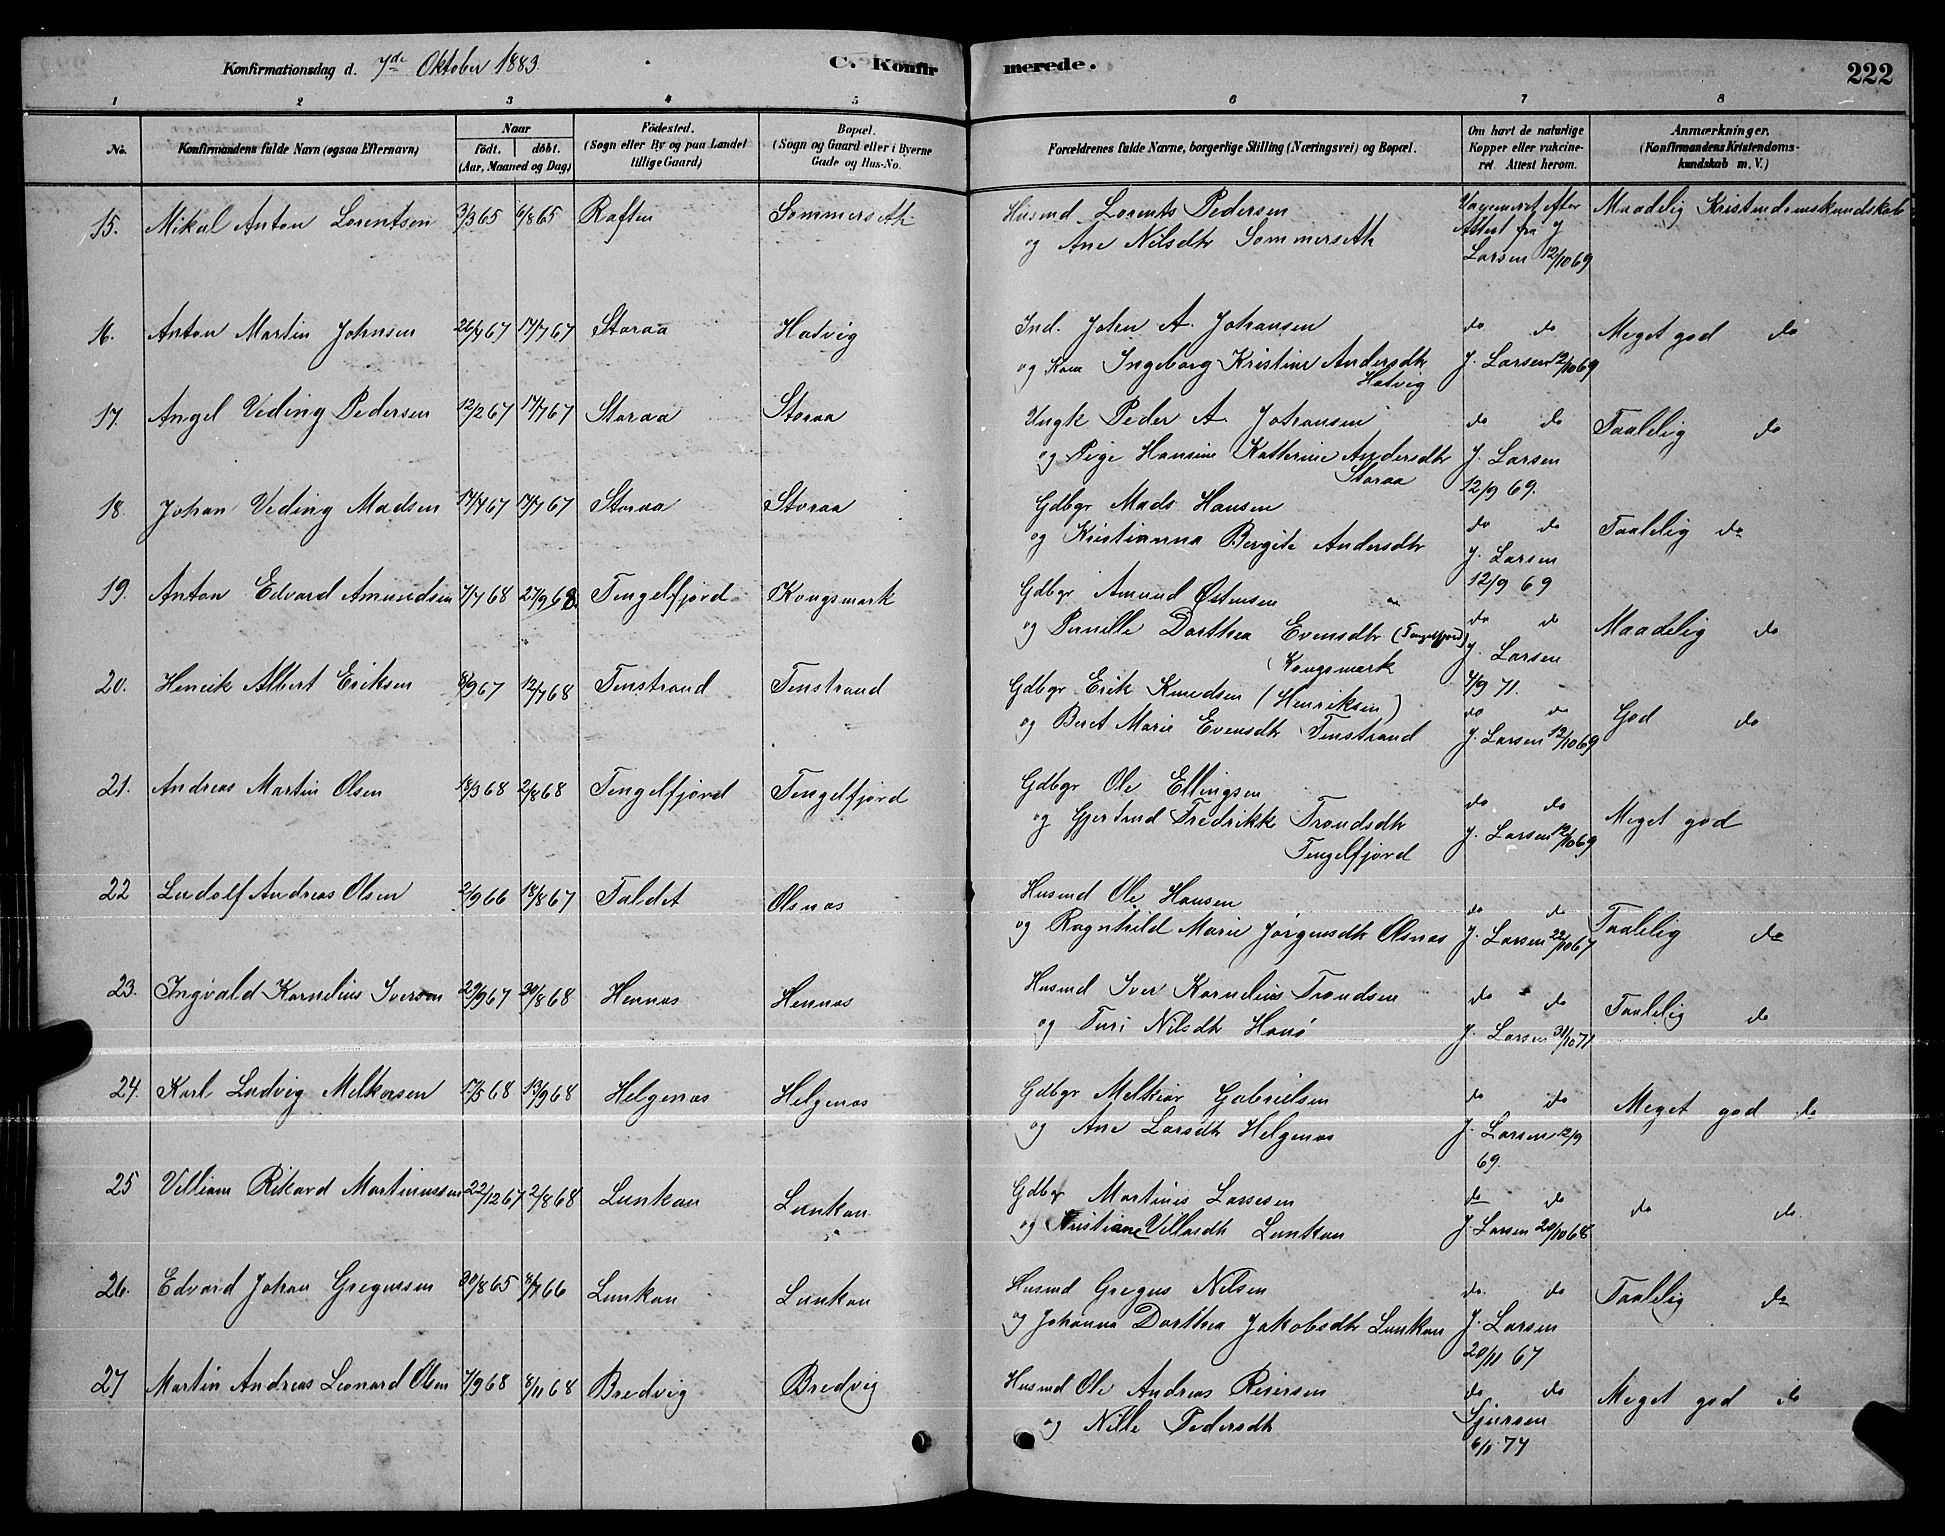 Konfirmationsdag d. 7de Oktober 1883.
C. Konfir merede.
222
1 2 3 4 5 6 7 8
No.
Konfirmandens fulde Navn (ogsaa Efternavn)
Naar
födt. döbt.
(Aar, Maaned og Dag)
Födested.
(Sogn eller By og paa Landet
tillige Gaard)
Bopæl.
(Sogn og Gaard eller i Byerne
Gade og Hus-No.
Forældrenes fulde Navne, borgerlige Stilling (Næringsvei) og Bopæl.
Om havt de naturlige
Kopper eller vakcine-
ret. Attest herom.
Anmærkninger.
(Konfirmandens Kristendoms-
kundskab m. V.)
15. Mikal Anton Lorentsen 3/3 65 6/8 65 Raften Sommerseth
Husmd Lorents Pedersen
og Ane Nilsdtr Sommerseth
Attest fra J
Larsen 12/10 69
Maadelig Kristendomskundskab
16. Anton Martin Johnsen 17/7 67 Storaa Hatvig
Ind. John A. Johansen
og Kone Ingeborg Kristine Andersdtr
Hatvig
do do
J. Larsen 12/10 69
Meget god do
17. Angel Veding Pedersen 12/2 67 17/7 67 Storaa Storaa
Ungk Peder A. Johansen
og Pige Hansine Katherine Andersdtr
Storaa
do do
J. Larsen
12/9 69.
Taalelig do
18. Johan Veding Madsen 17/7 67 Storaa Storaa
Gdbgr Mads Hansen
og Kristianna Bergite Andersdtr
do do
J. Larsen
12/9 69
Taalelig do
19. Anton Edvard Amundsen 27/9 68. Tengelfjord Kongsmark
Gdbgr Amund Østensen
og Pernille Dorthea Evensdtr (Tengelfjord)
Kongsmark
do do
J. Larsen
4/9 71.
Maadelig do
20. Henrik Albert Eriksen 8/9 67 12/7 68 Tenstrand Tenstrand
Gdbgr Erik Knudsen (Henriksen)
og Beret Marie Evensdtr Tenstrand
do do
J. Larsen 12/10 69
God do
21. Andreas Martin Olsen 18/3 68 2/8 68 Tengelfjord Tengelfjord
Gdbgr Ole Ellingsen
og Gjertrud Fredrikke Trondsdtr
Tengelfjord
do do
J. Larsen 12/10 69
Meget god
22 Ludolf Andreas Olsen 2/9 66 18/8 67 Faldet Olsnas
Husmd Ole Hansen
og Ragnhild Marie Jørgensdtr Olsnas
do do
J. Larsen 22/10 67
Taalelig do
23. Ingvald Kornelius Iversen 29/9 67 30/8 68 Hennas Hennas
Husmd Iver Kornelius Trondsen
og Turi Nilsdtr Hanø
do do
J. Larsen 31/10 71
Taalelig do
24. Karl Ludvig Melkersen 17/5 68 13/9 68 Helgenas Helgenas
Gdbgr Melkior Gabrielsen
og Ane Larsdtr Helgenas
do do
J. Larsen 12/9
69.
Meget god do
25 Villiam Rikard Martinussen 22/12 67 2/8 68 Lunkan Lunkan
Gdbgr Martinus Larsen
og Kristiane Villasdtr Lunkan
do do
J. Larsen 20/10 68
do do
26. Edvard Johan Gregussen 30/8 65 8/7 66 Lunkan Lunkan
Husmd Gregus Nilsen
og Johanna Dorthea Jakobsdtr Lunkan
do. do
J. Larsen
20/11 67
Taalelig do
27 Martin Andreas Leonard Olsen 7/9 68 8/11 68 Bredvig Bredvig
Husmd Ole Andreas Reiersen
og Nille Pedersdtr
do do
Sjursen
Meget god do